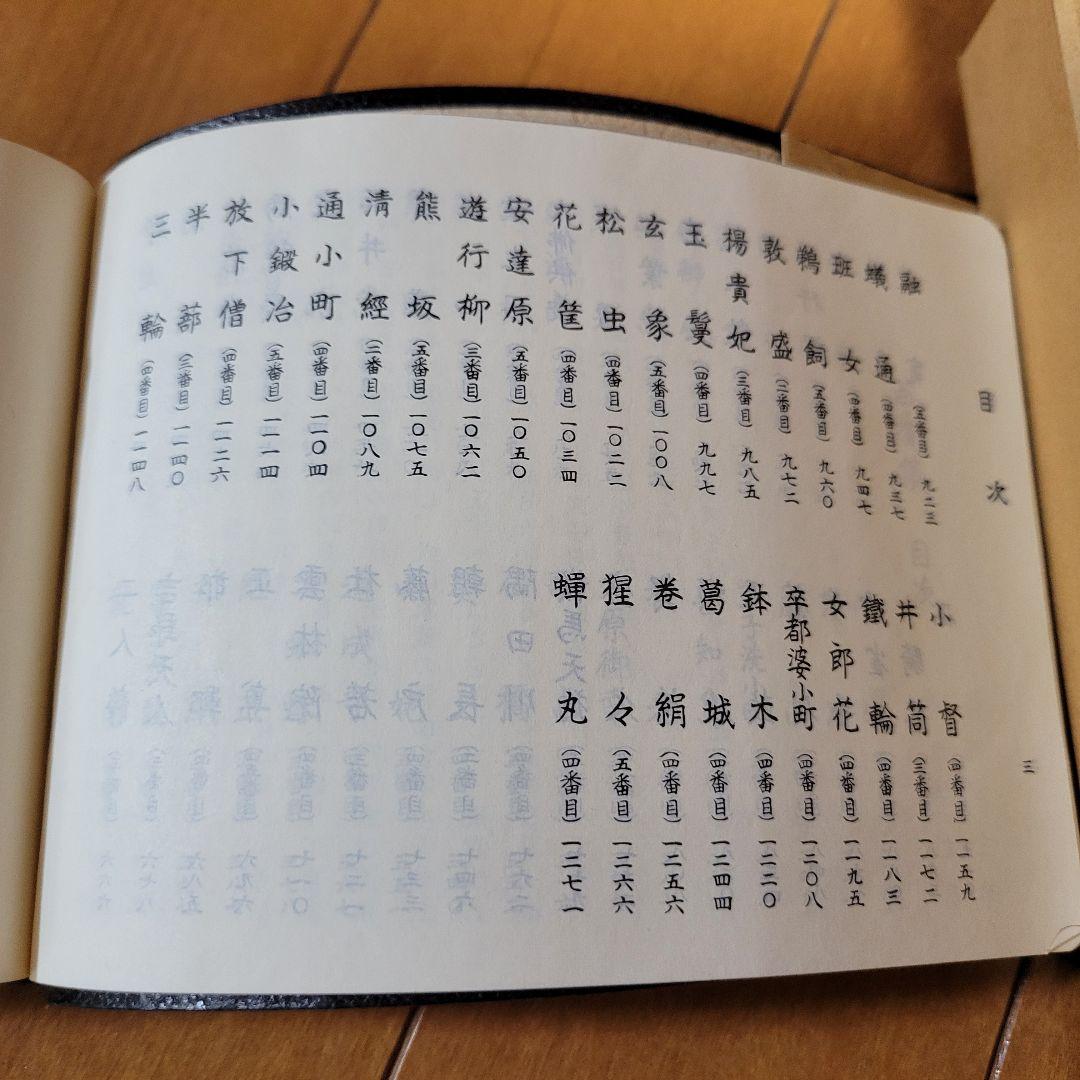 目次
融（五番目）九二三
蟻通（四番目）九三七
班女（四番目）九四七
鵜飼（五番目）九六〇
敦盛（二番目）九七二
楊貴妃（三番目）九八五
玉鬘（四番目）九九七
玄象（五番目）一〇〇八
松虫（四番目）一〇二二
花筐（四番目）一〇三四
安達原（五番目）一〇五〇
遊行柳（三番目）一〇六二
熊坂（五番目）一〇七五
清經（二番目）一〇八九
通小町（四番目）一一〇四
小鍛冶（五番目）一一一四
放下僧（四番目）一一二六
半蔀（三番目）一一四〇
三輪（四番目）一一四八
小督（四番目）一一五九
井筒（三番目）一一七二
鐵輪（四番目）一一八三
女郎花（四番目）一一九五
卒都婆小町（四番目）一二〇八
鉢木（四番目）一二二〇
葛城（四番目）一二四四
巻絹（四番目）一二五六
猩々（五番目）一二六六
蟬丸（四番目）一二七一
三